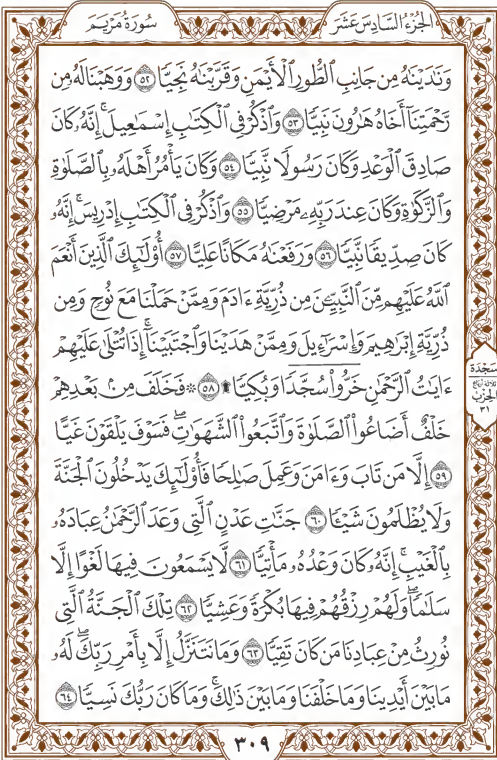 الجُزْءُ السَّادِسَ عَشَرَ
سُورَةُ مَرْيَمَ
وَنَٰدَيْنَٰهُ مِن جَانِبِ ٱلطُّورِ ٱلْأَيْمَنِ وَقَرَّبْنَٰهُ نَجِيًّا ٥٢ وَوَهَبْنَا لَهُۥ مِن
رَّحْمَتِنَآ أَخَاهُ هَٰرُونَ نَبِيًّا ٥٣ وَٱذْكُرْ فِي ٱلْكِتَٰبِ إِسْمَٰعِيلَ ۚ إِنَّهُۥ كَانَ
صَادِقَ ٱلْوَعْدِ وَكَانَ رَسُولًا نَّبِيًّا ٥٤ وَكَانَ يَأْمُرُ أَهْلَهُۥ بِٱلصَّلَوٰةِ
وَٱلزَّكَوٰةِ وَكَانَ عِندَ رَبِّهِۦ مَرْضِيًّا ٥٥ وَٱذْكُرْ فِي ٱلْكِتَٰبِ إِدْرِيسَ ۚ إِنَّهُۥ
كَانَ صِدِّيقًا نَّبِيًّا ٥٦ وَرَفَعْنَٰهُ مَكَانًا عَلِيًّا ٥٧ أُو۟لَٰٓئِكَ ٱلَّذِينَ أَنْعَمَ
ٱللَّهُ عَلَيْهِم مِّنَ ٱلنَّبِيِّـۧنَ مِن ذُرِّيَّةِ ءَادَمَ وَمِمَّنْ حَمَلْنَا مَعَ نُوحٍ وَمِن
ذُرِّيَّةِ إِبْرَٰهِيمَ وَإِسْرَٰٓءِيلَ وَمِمَّنْ هَدَيْنَا وَٱجْتَبَيْنَآ ۚ إِذَا تُتْلَىٰ عَلَيْهِمْ
ءَايَٰتُ ٱلرَّحْمَٰنِ خَرُّوا۟ سُجَّدًا وَبُكِيًّا ۩ ٥٨ ۞ فَخَلَفَ مِنۢ بَعْدِهِمْ
خَلْفٌ أَضَاعُوا۟ ٱلصَّلَوٰةَ وَٱتَّبَعُوا۟ ٱلشَّهَوَٰتِ ۖ فَسَوْفَ يَلْقَوْنَ غَيًّا
٥٩ إِلَّا مَن تَابَ وَءَامَنَ وَعَمِلَ صَٰلِحًا فَأُو۟لَٰٓئِكَ يَدْخُلُونَ ٱلْجَنَّةَ
وَلَا يُظْلَمُونَ شَيْـًٔا ٦٠ جَنَّٰتِ عَدْنٍ ٱلَّتِي وَعَدَ ٱلرَّحْمَٰنُ عِبَادَهُۥ
بِٱلْغَيْبِ ۚ إِنَّهُۥ كَانَ وَعْدُهُۥ مَأْتِيًّا ٦١ لَّا يَسْمَعُونَ فِيهَا لَغْوًا إِلَّا
سَلَٰمًا ۖ وَلَهُمْ رِزْقُهُمْ فِيهَا بُكْرَةً وَعَشِيًّا ٦٢ تِلْكَ ٱلْجَنَّةُ ٱلَّتِي
نُورِثُ مِنْ عِبَادِنَا مَن كَانَ تَقِيًّا ٦٣ وَمَا نَتَنَزَّلُ إِلَّا بِأَمْرِ رَبِّكَ ۖ لَهُۥ
مَا بَيْنَ أَيْدِينَا وَمَا خَلْفَنَا وَمَا بَيْنَ ذَٰلِكَ ۚ وَمَا كَانَ رَبُّكَ نَسِيًّا ٦٤
سَجْدَة
ثلاثة أرباع
الحِزْب
٣١
٣٠٩